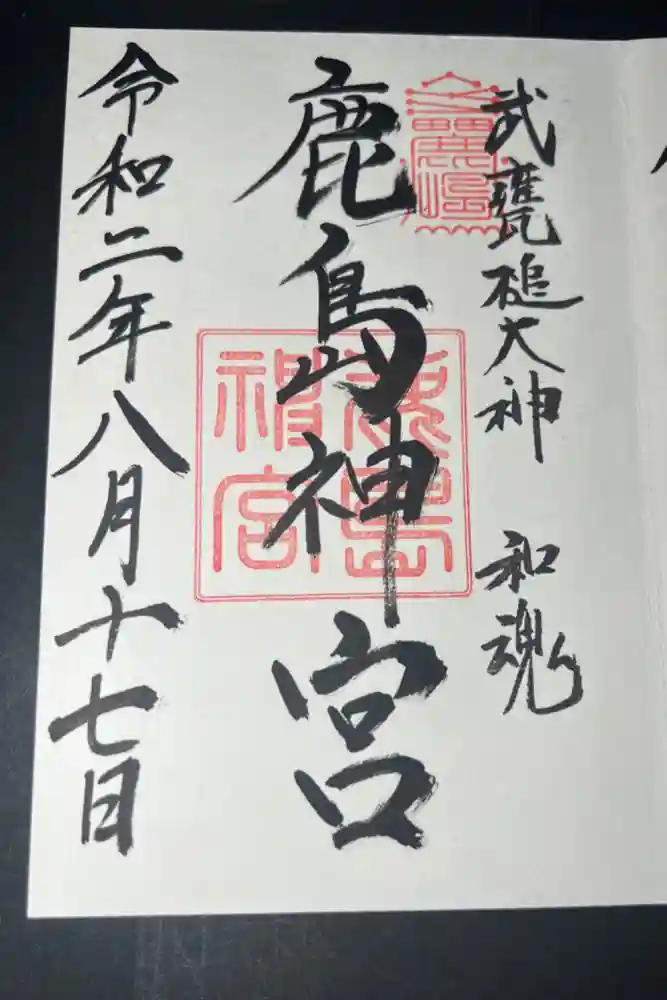 武甕槌大神 和魂
鹿島神宮
鹿島
神宮
令和二年八月十七日